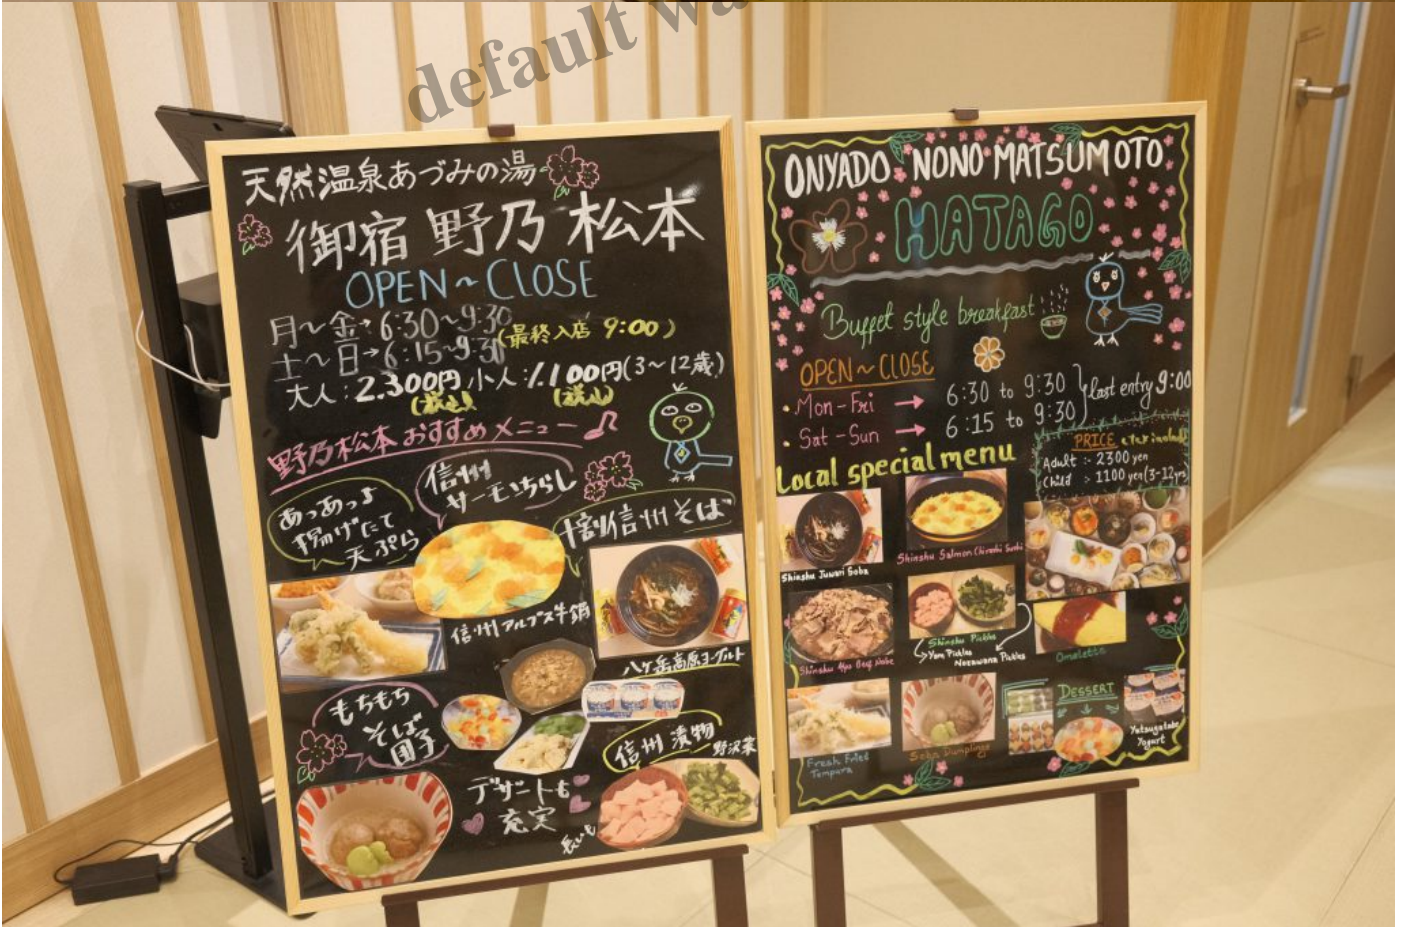 default wa
天然温泉あづみの湯
御宿 野乃 松本
OPEN~CLOSE
月~金→6:30~9:30
(最終入店 9:00)
土~日→6:15~9:30
大人:2.300円 小人:1.100円(3~12歳)
(税込) (税込)
野乃松本おすすめメニュー♪
あっあっよ
揚げたて
天ぷら
信州
サーモンちらし
十割信州そば
信州アルプス牛鍋
八ヶ岳高原ヨーグルト
もちもち
そば
団子
信州 漬物
野沢菜
デザートも
充実
長いも
ONYADO NONO MATSUMOTO
HATAGO
Buffet style breakfast
OPEN~CLOSE
• Mon-Fri → 6:30 to 9:30
• Sat-Sun → 6:15 to 9:30
last entry 9:00
PRICE
Adult :- 2300 yen
Child :- 1100 yen (3-12yrs)
Local special menu
Shinshu Juwari Soba
Shinshu Salmon Chirashi Sushi
Shinshu Beef Nabe
Shinshu Pickles
Yam Pickles
Nozawana Pickles
Omelette
Fresh Fried
Tempura
Soba Dumplings
DESSERT
Yatsugatake
Yogurt